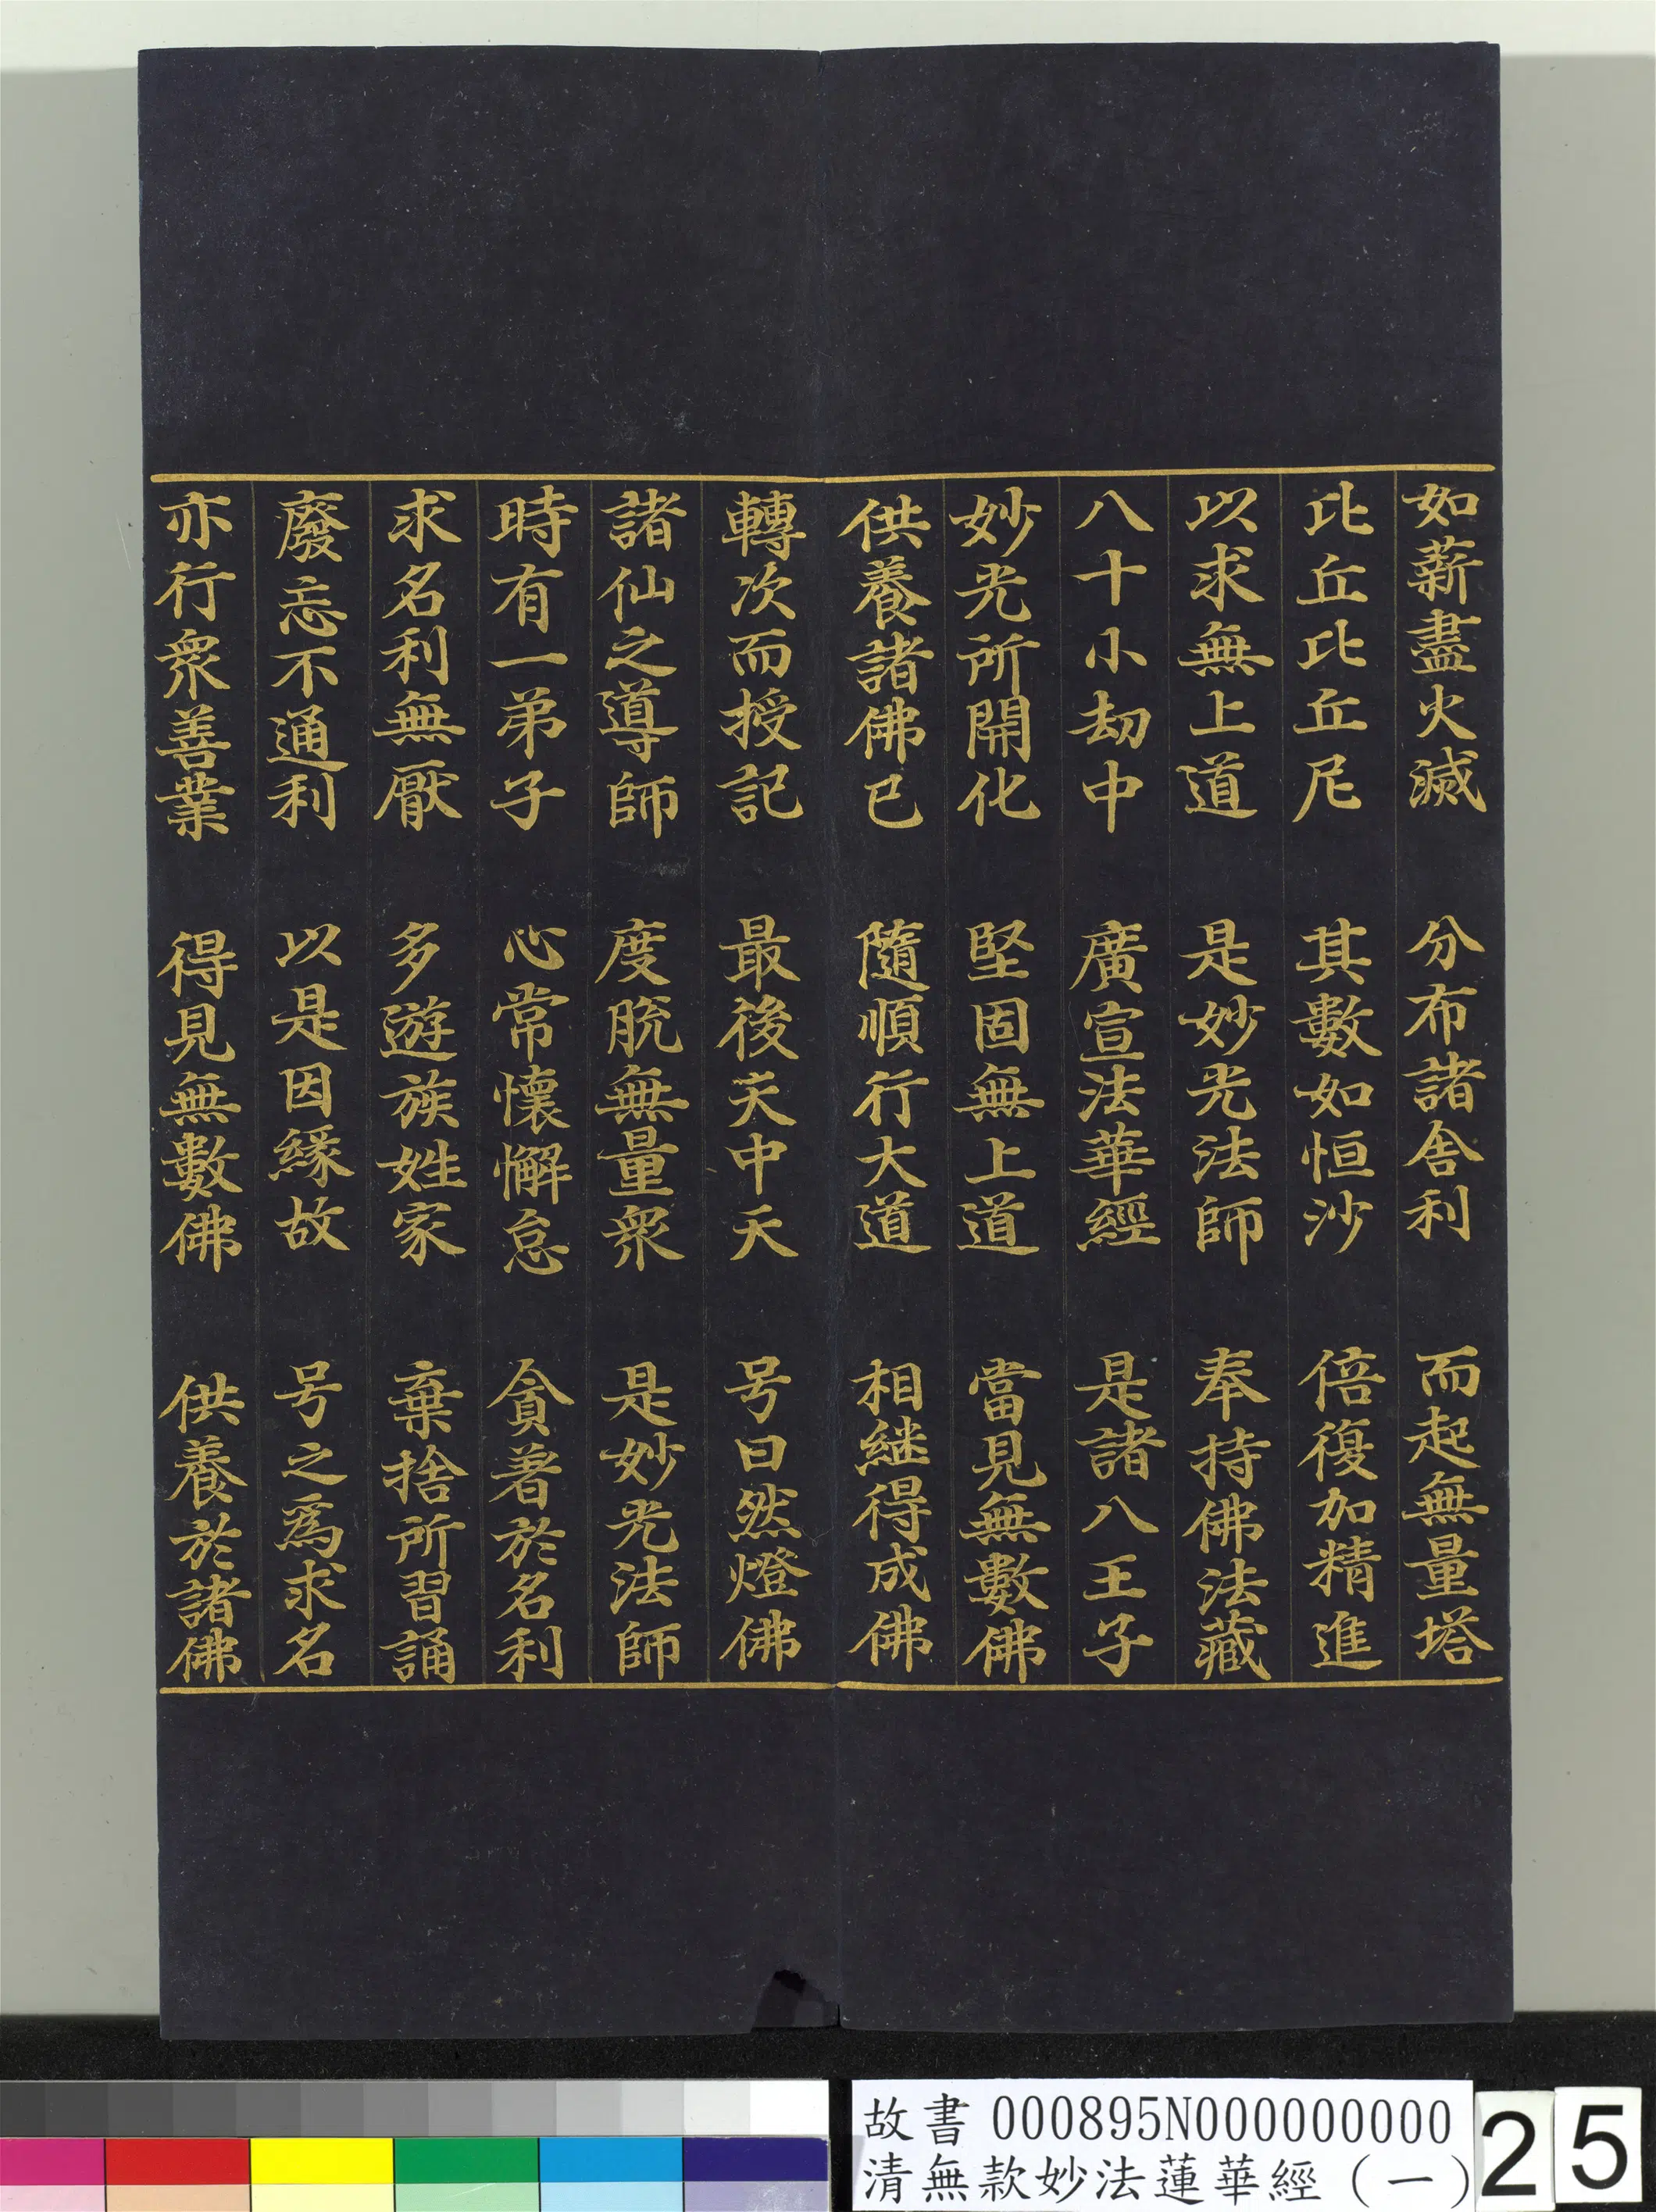 如薪盡火滅　分布諸舍利　而起無量塔
比丘比丘尼　其數如恒沙　倍復加精進
以求無上道　是妙光法師　奉持佛法藏
八十小劫中　廣宣法華經　是諸八王子
妙光所開化　堅固無上道　當見無數佛
供養諸佛已　隨順行大道　相継得成佛
轉次而授記　最後天中天　号曰然燈佛
諸仙之導師　度脫無量衆　是妙光法師
時有一弟子　心常懷懈怠　貪著於名利
求名利無厭　多遊族姓家　棄捨所習誦
廢忘不通利　以是因緣故　号之為求名
亦行衆善業　得見無數佛　供養於諸佛
故書 000895N000000000
清無款妙法蓮華經（一）
25